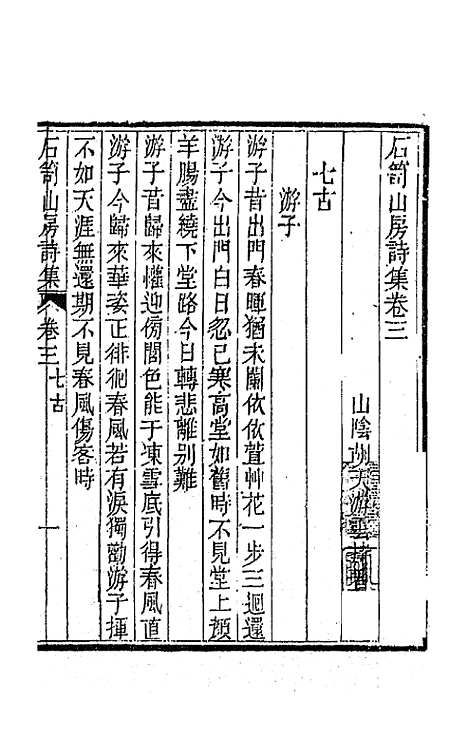 石笥山房詩集卷三
山陰胡天游雲持
七古
游子
游子昔出門春暉猶未闌依依萱艸花一步三迴還
游子今出門白日忽已寒高堂如舊時不見堂上顏
羊腸盡繞下堂路今日轉悲離別難
游子昔歸來懽迎傍閭色能于凍雪底引得春風直
游子今歸來華姿正徘徊春風若有淚獨勸游子揮
不如天涯無還期不見春風傷客時
石笥山房詩集 卷三 七古 一